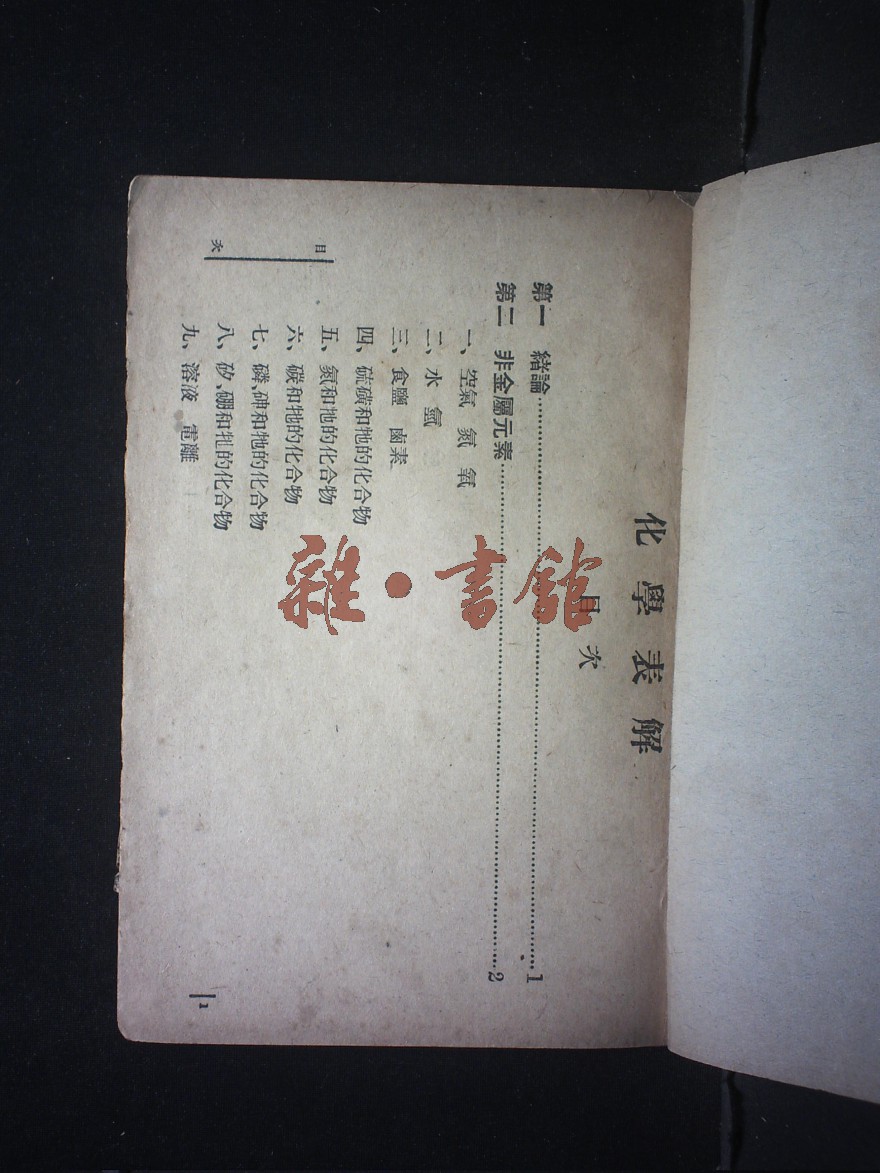 化學表解
目次
第一 緒論……1
第二 非金屬元素……2
一、空氣 氮 氧
二、水 氫
三、食鹽 鹵素
四、硫磺和牠的化合物
五、氮和牠的化合物
六、碳和牠的化合物
七、磷、砷和牠的化合物
八、矽、硼和牠的化合物
九、溶液 電離
目次
1
雜·書館